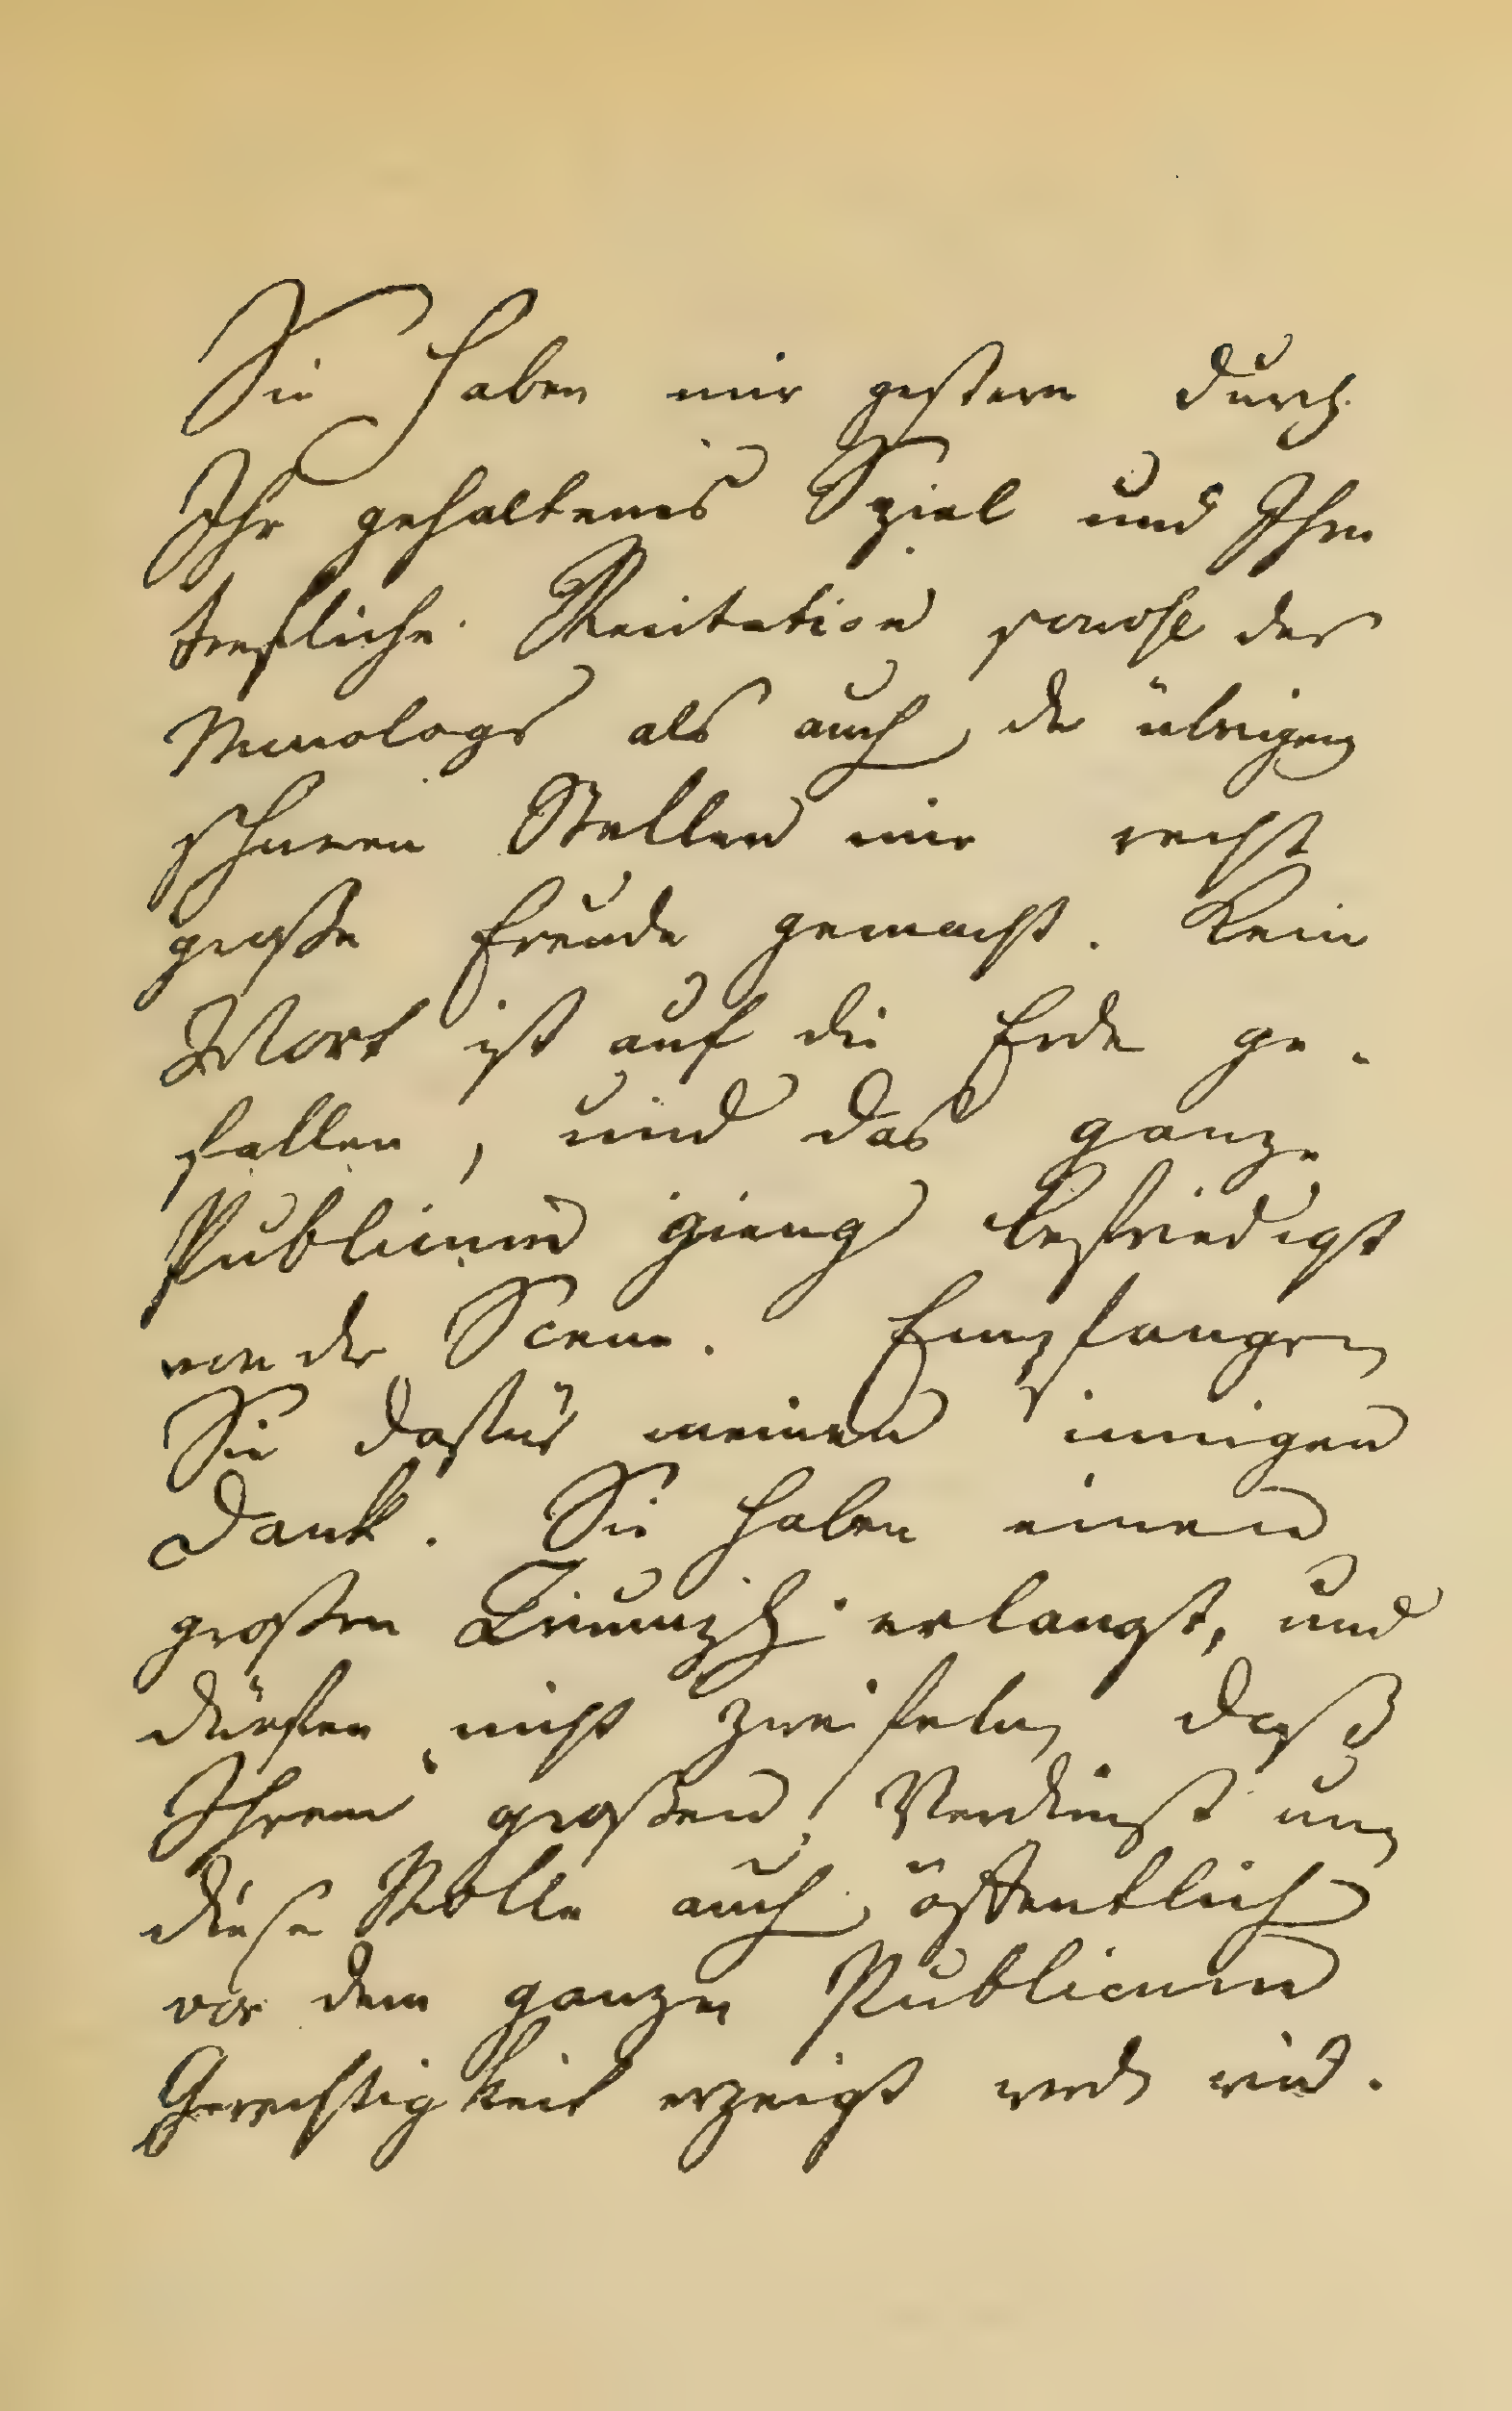 Sie haben mir gestern durch
Ihr gehaltenes Spiel und Ihre
trefliche Recitation sowohl des
Monologs als auch der übrigen
schweren Stellen mir recht
große Freude gemacht. Kein
Wort ist auf die Erde ge-
fallen, und das ganze
Publicum gieng befriedigt
von der Scene. Empfangen
Sie dafür meinen innigen
Dank. Sie haben einen
großen Triumph erlangt, und
dürfen nicht zweifeln, daß
Ihrem großen Verdienst um
diese Rolle auch öffentlich
vor dem ganzen Publicum
Gerechtigkeit erzeigt werden wird.